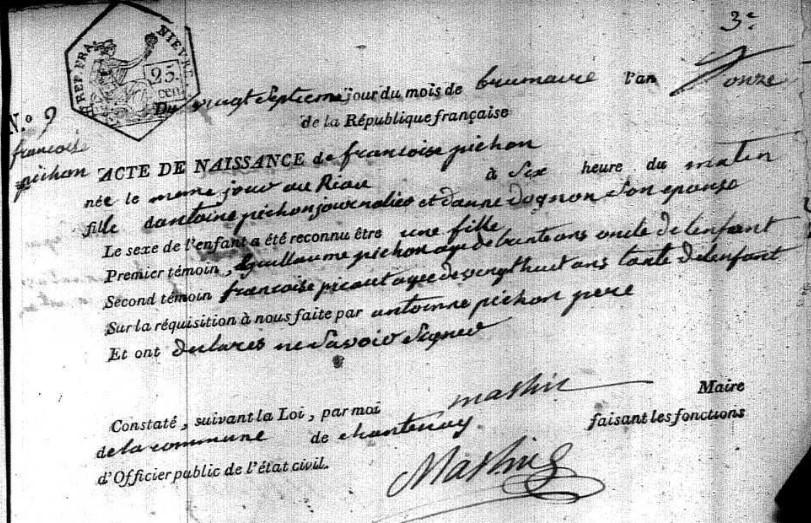 3e
REP. FRA. NIEVRE
25
cen
N.° 9
francoise
pichon
Du vingt septieme jour du mois de brumaire l'an onze
de la République française
ACTE DE NAISSANCE de francoise pichon
née le meme jour au Riau à Six heure du matin
fille dantoine pichon journalier et danne dognon Son epouse
Le sexe de l'enfant a été reconnu être une fille
Premier témoin, guillaume pichon age de trente ans oncle de lenfant
Second témoin francoise picaut agee de vingt huit ans tante de lenfant
Sur la réquisition à nous faite par antoinne pichon pere
Et ont declares ne Savoir Signer
Constaté, suivant la Loi, par moi mathie Maire
de la commune de chantenay faisant les fonctions
d'Officier public de l'état civil.